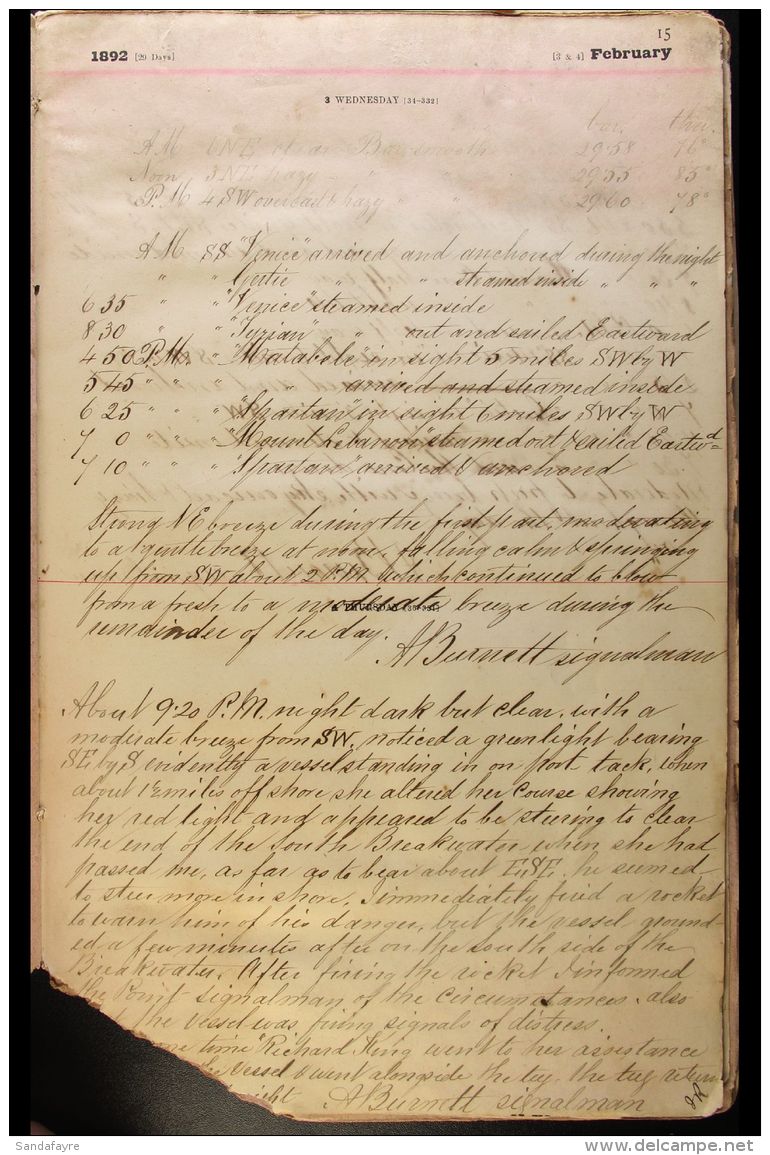 15
1892 [29 Days] [3 & 4] February
3 WEDNESDAY [34-332]
bar. ther.
A.M 6 NE clear Bar smooth 29.58 76°
Noon 3 NE hazy " " 29.55 85°
P.M 4 SW overcast & hazy " " 29.60 78°
A.M SS "Venice" arrived and anchored during the night
" " Gertie " " steamed inside " " "
6 35 " " "Venice" steamed inside
8 30 " " "Tyrian" " out and sailed Eastward
4 50 P.M. " "Matabele" in sight 5 miles SW by W
5 45 " " " " arrived and steamed inside
6 25 " " " "Spartan" in sight 6 miles SW by W
7 0 " " " "Mount Lebanon" steamed out & sailed Eastwd
7 10 " " " "Spartan" arrived & anchored
Strong NE breeze during the first part, moderating
to a gentle breeze at noon, falling calm & springing
up from SW about 2 P.M. which continued to blow
from a fresh to a moderate breeze during the
4 THURSDAY
remainder of the day.
A Burnett signalman
About 9.20 P.M. night dark but clear, with a
moderate breeze from SW. noticed a green light bearing
SE by S evidently a vessel standing in on port tack, when
about 1½ miles off shore she altered her course showing
her red light and appeared to be steering to clear
the end of the South Breakwater when she had
passed me, as far as to bear about ESE. he seemed
to steer more in shore. I immediately fired a rocket
to warn him of his danger, but the vessel ground-
ed a few minutes after on the south side of the
Breakwater. After firing the rocket I informed
the Point signalman of the circumstances. also
the vessel was firing signals of distress.
time "Richard King went to her assistance
vessel & went alongside the tug, the tug return
A Burnett signalman
Sandafayre www.delcampe.net